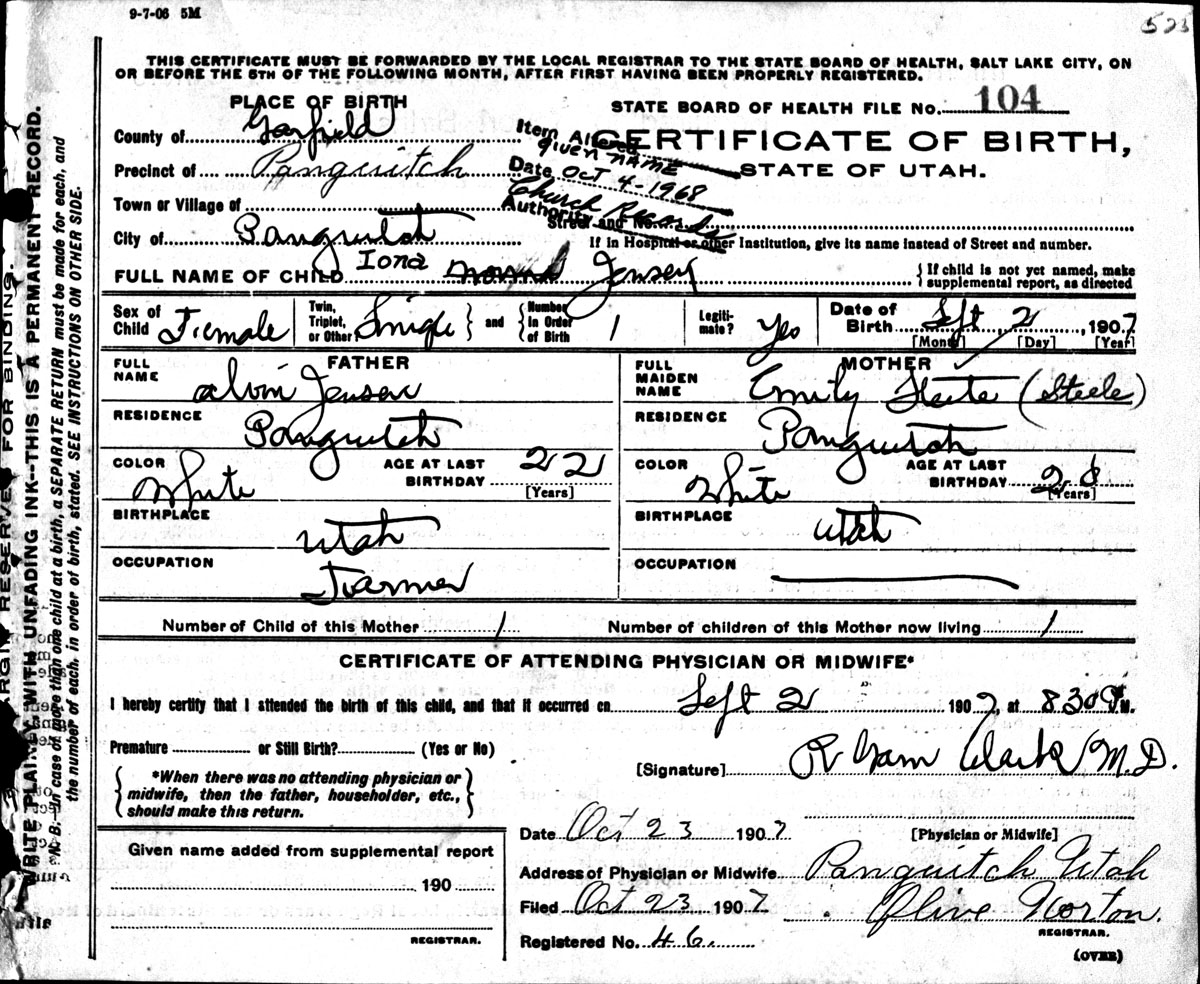 9-7-06 5M
525
THIS CERTIFICATE MUST BE FORWARDED BY THE LOCAL REGISTRAR TO THE STATE BOARD OF HEALTH, SALT LAKE CITY, ON
OR BEFORE THE 5TH OF THE FOLLOWING MONTH, AFTER FIRST HAVING BEEN PROPERLY REGISTERED.
PLACE OF BIRTH
STATE BOARD OF HEALTH FILE No. 104
County of Garfield
Item Altered
given NAME
CERTIFICATE OF BIRTH,
Precinct of Panguitch
Date Oct 4-1968
STATE OF UTAH.
Town or Village of
Authority Church Records
Street and No.
City of Panguitch
If in Hospital or other Institution, give its name instead of Street and number.
FULL NAME OF CHILD Iona Jensen
{ If child is not yet named, make supplemental report, as directed
Sex of Child Female
Twin, Triplet, or Other Single } and { Number in Order of Birth 1
Legitimate? Yes
Date of Birth Sept 2, 1907
[Month] [Day] [Year]
FATHER
FULL NAME Alvin Jensen
RESIDENCE Panguitch
COLOR White
AGE AT LAST BIRTHDAY 22
[Years]
BIRTHPLACE Utah
OCCUPATION Farmer
MOTHER
FULL MAIDEN NAME Emily (Steele)
RESIDENCE Panguitch
COLOR White
AGE AT LAST BIRTHDAY
[Years]
BIRTHPLACE Utah
OCCUPATION
Number of Child of this Mother 1
Number of children of this Mother now living 1
CERTIFICATE OF ATTENDING PHYSICIAN OR MIDWIFE*
I hereby certify that I attended the birth of this child, and that it occurred on Sept 2 1907, at 830 M.
Premature or Still Birth? (Yes or No)
[Signature] Clark M.D.
{ *When there was no attending physician or midwife, then the father, householder, etc., should make this return. }
Date Oct 23 1907
[Physician or Midwife]
Given name added from supplemental report
190
REGISTRAR.
Address of Physician or Midwife Panguitch Utah
Filed Oct 23 1907
Olive Norton.
REGISTRAR.
Registered No. 46.
(OVER)
MARGIN RESERVED FOR BINDING.
WRITE PLAINLY WITH UNFADING INK--THIS IS A PERMANENT RECORD.
N. B.--In case of more than one child at a birth, a SEPARATE RETURN must be made for each, and
the number of each, in order of birth, stated. SEE INSTRUCTIONS ON OTHER SIDE.